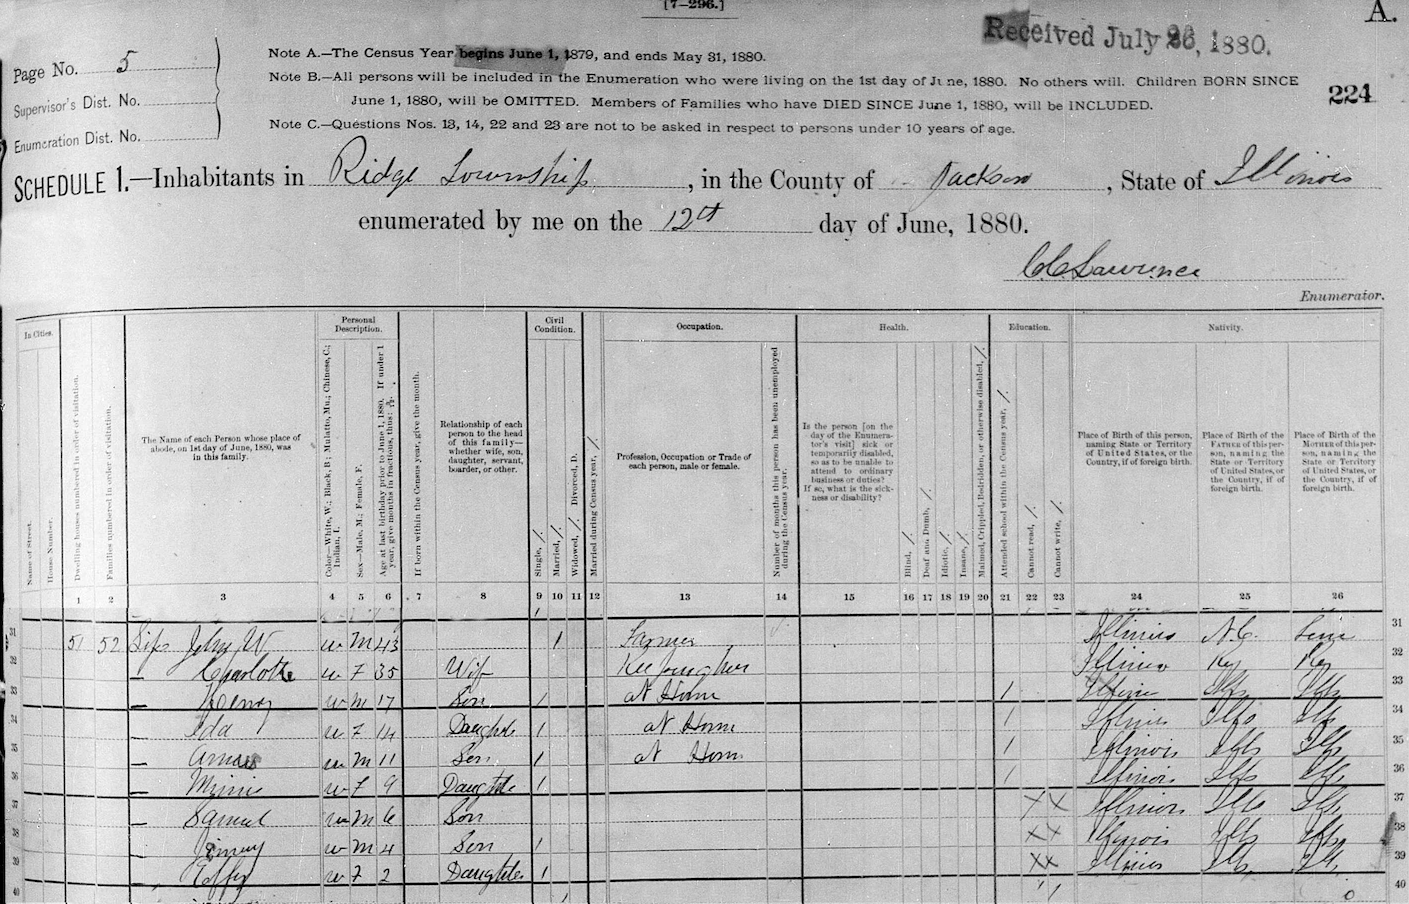 [7-296.]
A.
Received July 26, 1880.
Page No. 5
Supervisor's Dist. No.
Enumeration Dist. No.
Note A.—The Census Year begins June 1, 1879, and ends May 31, 1880.
Note B.—All persons will be included in the Enumeration who were living on the 1st day of June, 1880. No others will. Children BORN SINCE
June 1, 1880, will be OMITTED. Members of Families who have DIED SINCE June 1, 1880, will be INCLUDED.
Note C.—Questions Nos. 13, 14, 22 and 23 are not to be asked in respect to persons under 10 years of age.
224
SCHEDULE 1.—Inhabitants in Ridge Township, in the County of Jackson, State of Illinois
enumerated by me on the 12th day of June, 1880.
C.C. Lawrence
Enumerator.
In Cities.
Name of Street.
House Number.
Dwelling houses numbered in order of visitation.
Families numbered in order of visitation.
The Name of each Person whose place of
abode, on 1st day of June, 1880, was
in this family.
Personal
Description.
Color—White, W.; Black, B.; Mulatto, Mu.; Chinese, C.;
Indian, I.
Sex—Male, M.; Female, F.
Age at last birthday prior to June 1, 1880. If under 1
year, give months in fractions, thus:
If born within the Census year, give the month.
Relationship of each
person to the head
of this family—
whether wife, son,
daughter, servant,
boarder, or other.
Civil
Condition.
Single, /.
Married, /.
Widowed, /. Divorced, D.
Married during Census year, /.
Occupation.
Profession, Occupation or Trade of
each person, male or female.
Number of months this person has been unemployed
during the Census year.
Health.
Is the person [on the
day of the Enumera-
tor's visit] sick or
temporarily disabled,
so as to be unable to
attend to ordinary
business or duties?
If so, what is the sick-
ness or disability?
Blind, /.
Deaf and Dumb, /.
Idiotic, /.
Insane, /.
Maimed, Crippled, Bedridden, or otherwise disabled, /.
Education.
Attended school within the Census year, /.
Cannot read, /.
Cannot write, /.
Nativity.
Place of Birth of this person,
naming State or Territory
of United States, or the
Country, if of foreign birth.
Place of Birth of the
FATHER of this per-
son, naming the
State or Territory
of United States, or
the Country, if of
foreign birth.
Place of Birth of the
MOTHER of this per-
son, naming the
State or Territory
of United States, or
the Country, if of
foreign birth.
1 2 3 4 5 6 7 8 9 10 11 12 13 14 15 16 17 18 19 20 21 22 23 24 25 26
31 51 52 John W w M 43 / Farmer Illinois N.C. 31
32 — Charlotte w F 35 Wife Illinois Ky Ky 32
33 — Henry w M 17 Son / at Home / Illinois Ills Ills 33
34 — Ida w F 14 Daughter / at Home / Illinois Ills Ills 34
35 — w M 11 Son / at Home / Illinois Ills Ills 35
36 — w F 9 Daughter / / Illinois Ills Ills 36
37 — Samuel w M 6 Son X X Illinois Ills Ills 37
38 — w M 4 Son / X X Illinois Ills Ills 38
39 — w F 2 Daughter / X X Illinois Ills Ills 39
40 40